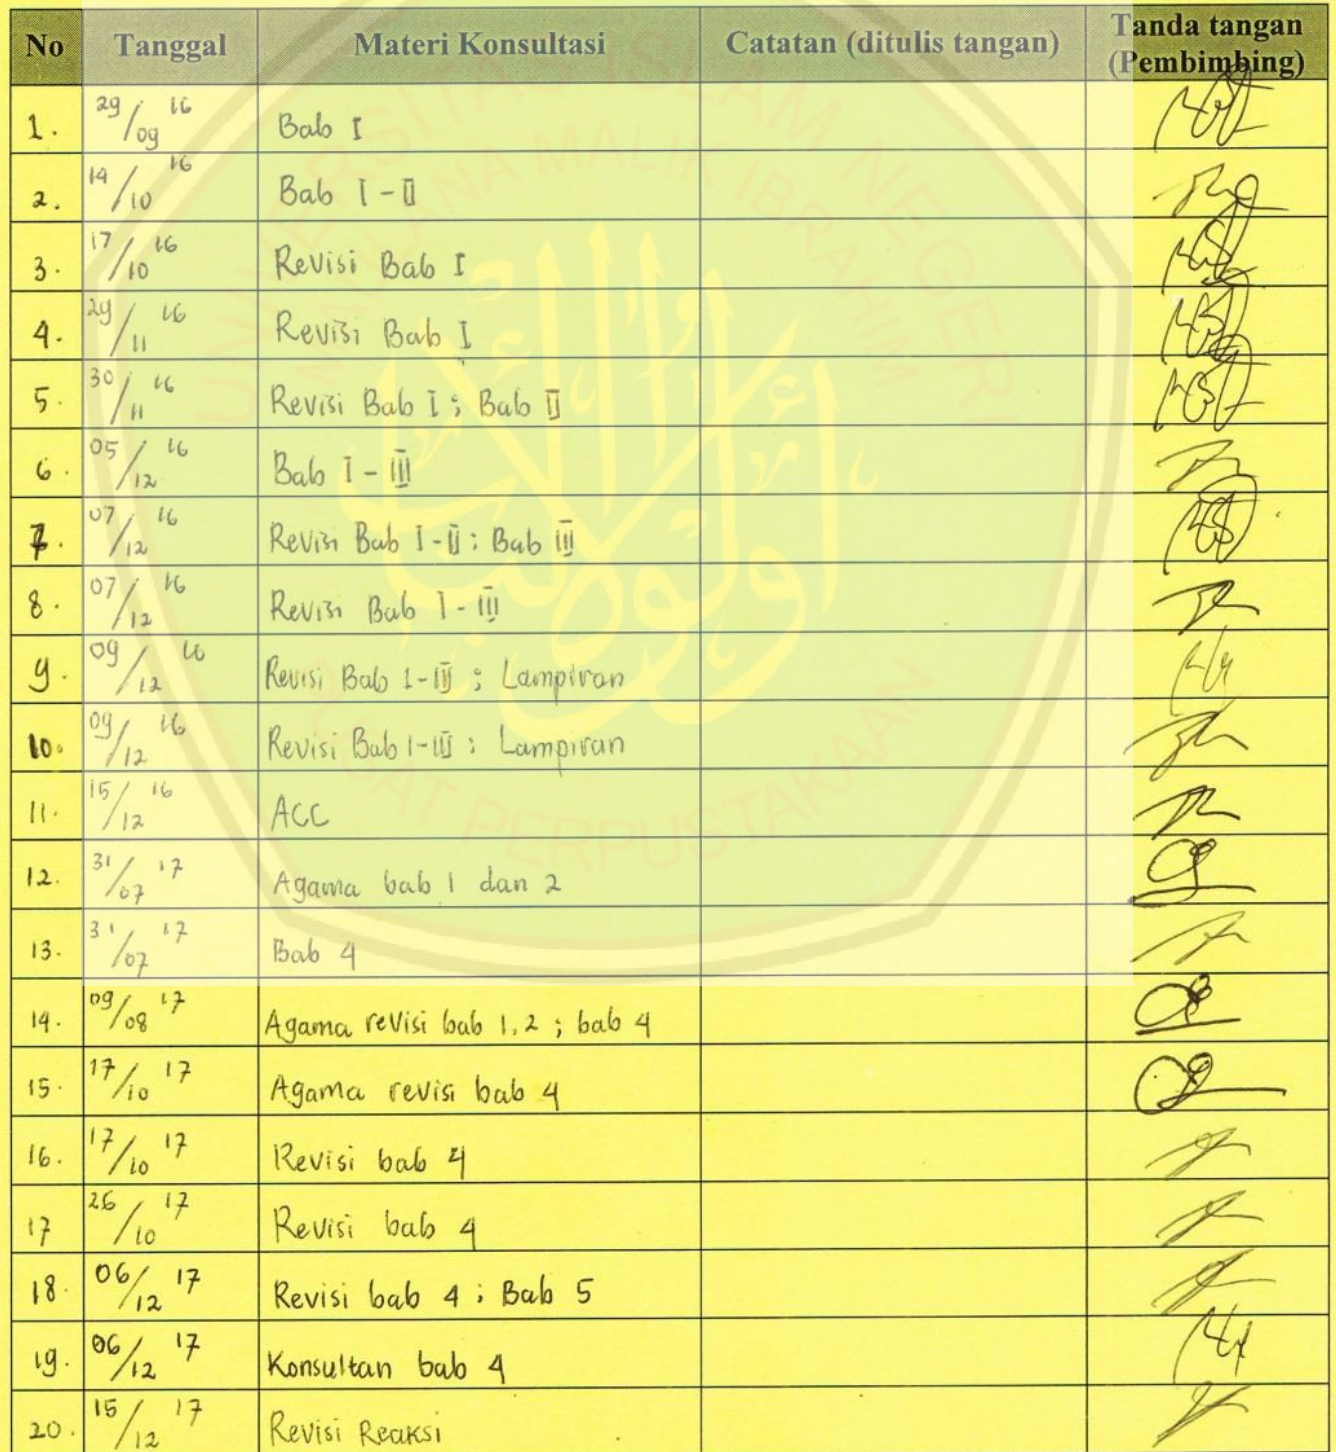 No Tanggal Materi Konsultasi Catatan (ditulis tangan) Tanda tangan (Pembimbing)
1. 29/09 16 Bab I
2. 14/10 16 Bab I - II
3. 17/10 16 Revisi Bab I
4. 29/11 16 Revisi Bab I
5. 30/11 16 Revisi Bab I ; Bab II
6. 05/12 16 Bab I - III
7. 07/12 16 Revisi Bab I - II ; Bab III
8. 07/12 16 Revisi Bab I - III
9. 09/12 16 Revisi Bab I - III ; Lampiran
10. 09/12 16 Revisi Bab I - III ; Lampiran
11. 15/12 16 ACC
12. 31/07 17 Agama bab 1 dan 2
13. 31/07 17 Bab 4
14. 09/08 17 Agama revisi bab 1, 2 ; bab 4
15. 17/10 17 Agama revisi bab 4
16. 17/10 17 Revisi bab 4
17 26/10 17 Revisi bab 4
18. 06/12 17 Revisi bab 4 ; Bab 5
19. 06/12 17 Konsultan bab 4
20. 15/12 17 Revisi Reaksi
MAULANA MALIK IBRAHIM
PUSAT PERPUSTAKAAN